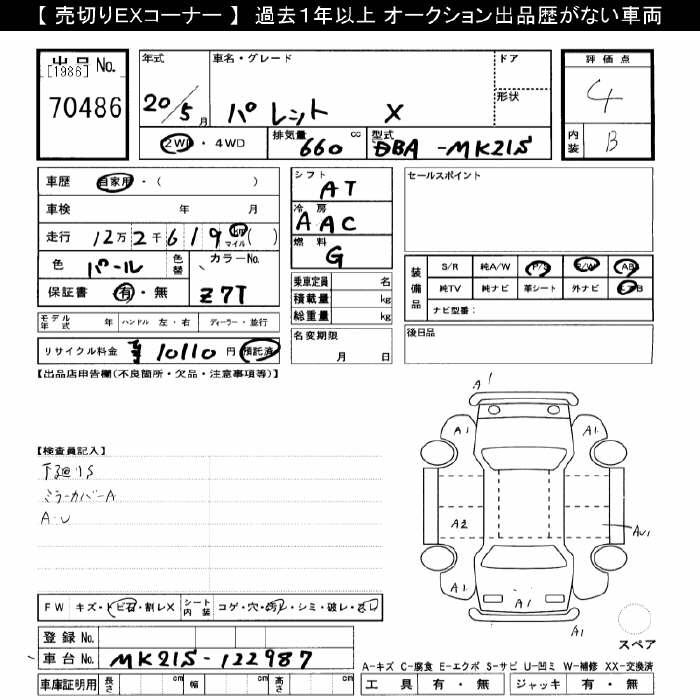 【 売切りEXコーナー 】 過去1年以上 オークション出品歴がない車両
出品 No.
[1986]
70486
年式
20/5月
車名・グレード
パレット X
ドア
形状
2WD・4WD
排気量 660 cc
型式 DBA-MK21S
評価点
4
内装 B
車歴 自家用・( )
車検 年 月
走行 12万2千619 km マイル ( )
色 パール 色替 カラーNo.
保証書 有・無 Z7T
モデル年式 年 ハンドル 左・右 ディーラー・並行
リサイクル料金 ¥10110円 預託済
シフト AT
冷房 AAC
燃料 G
乗車定員 名
積載量 kg
総重量 kg
名変期限
月 日
セールスポイント
装備品
S/R 純A/W P/S P/W AB
純TV 純ナビ 革シート 外ナビ
ナビ型番:
後日品
【出品店申告欄(不良箇所・欠品・注意事項等)】
【検査員記入】
下廻りS
ミラーカバーA
A・U
A1
A1
A1
A2
AU1
A1
A1
A1
A1
スペア
FW キズ・トビ石・割レX シート内装 コゲ・穴・汚レ・シミ・破レ・
登録 No.
車台 No. MK21S-122987
車庫証明用 長さ cm 幅 cm 高さ cm
A-キズ C-腐食 E-エクボ S-サビ U-凹ミ W-補修 XX-交換済
工具 有・無 ジャッキ 有・無